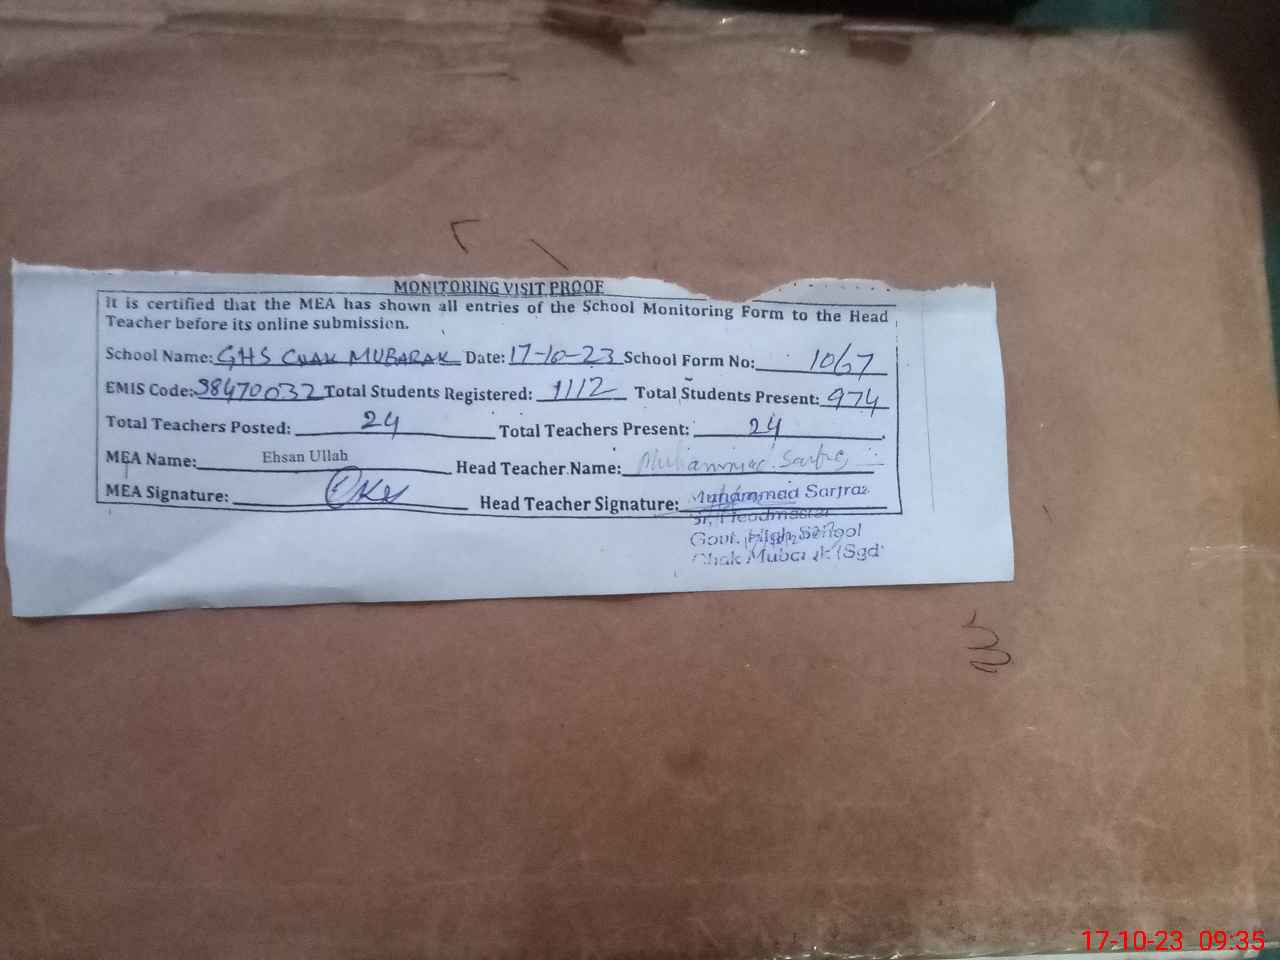 MONITORING VISIT PROOF
It is certified that the MEA has shown all entries of the School Monitoring Form to the Head
Teacher before its online submission.
School Name: GHS CHAK MUBARAK Date: 17-10-23 School Form No: 1067
EMIS Code: 38470032 Total Students Registered: 1112 Total Students Present: 974
Total Teachers Posted: 24 Total Teachers Present: 24
MEA Name: Ehsan Ullah Head Teacher Name: Muhammad Sarfraz
MEA Signature: Head Teacher Signature: Muhammad Sarfraz
Sr. Headmaster
Govt. High School
Chak Mubarak (Sgd)
17-10-23 09:35